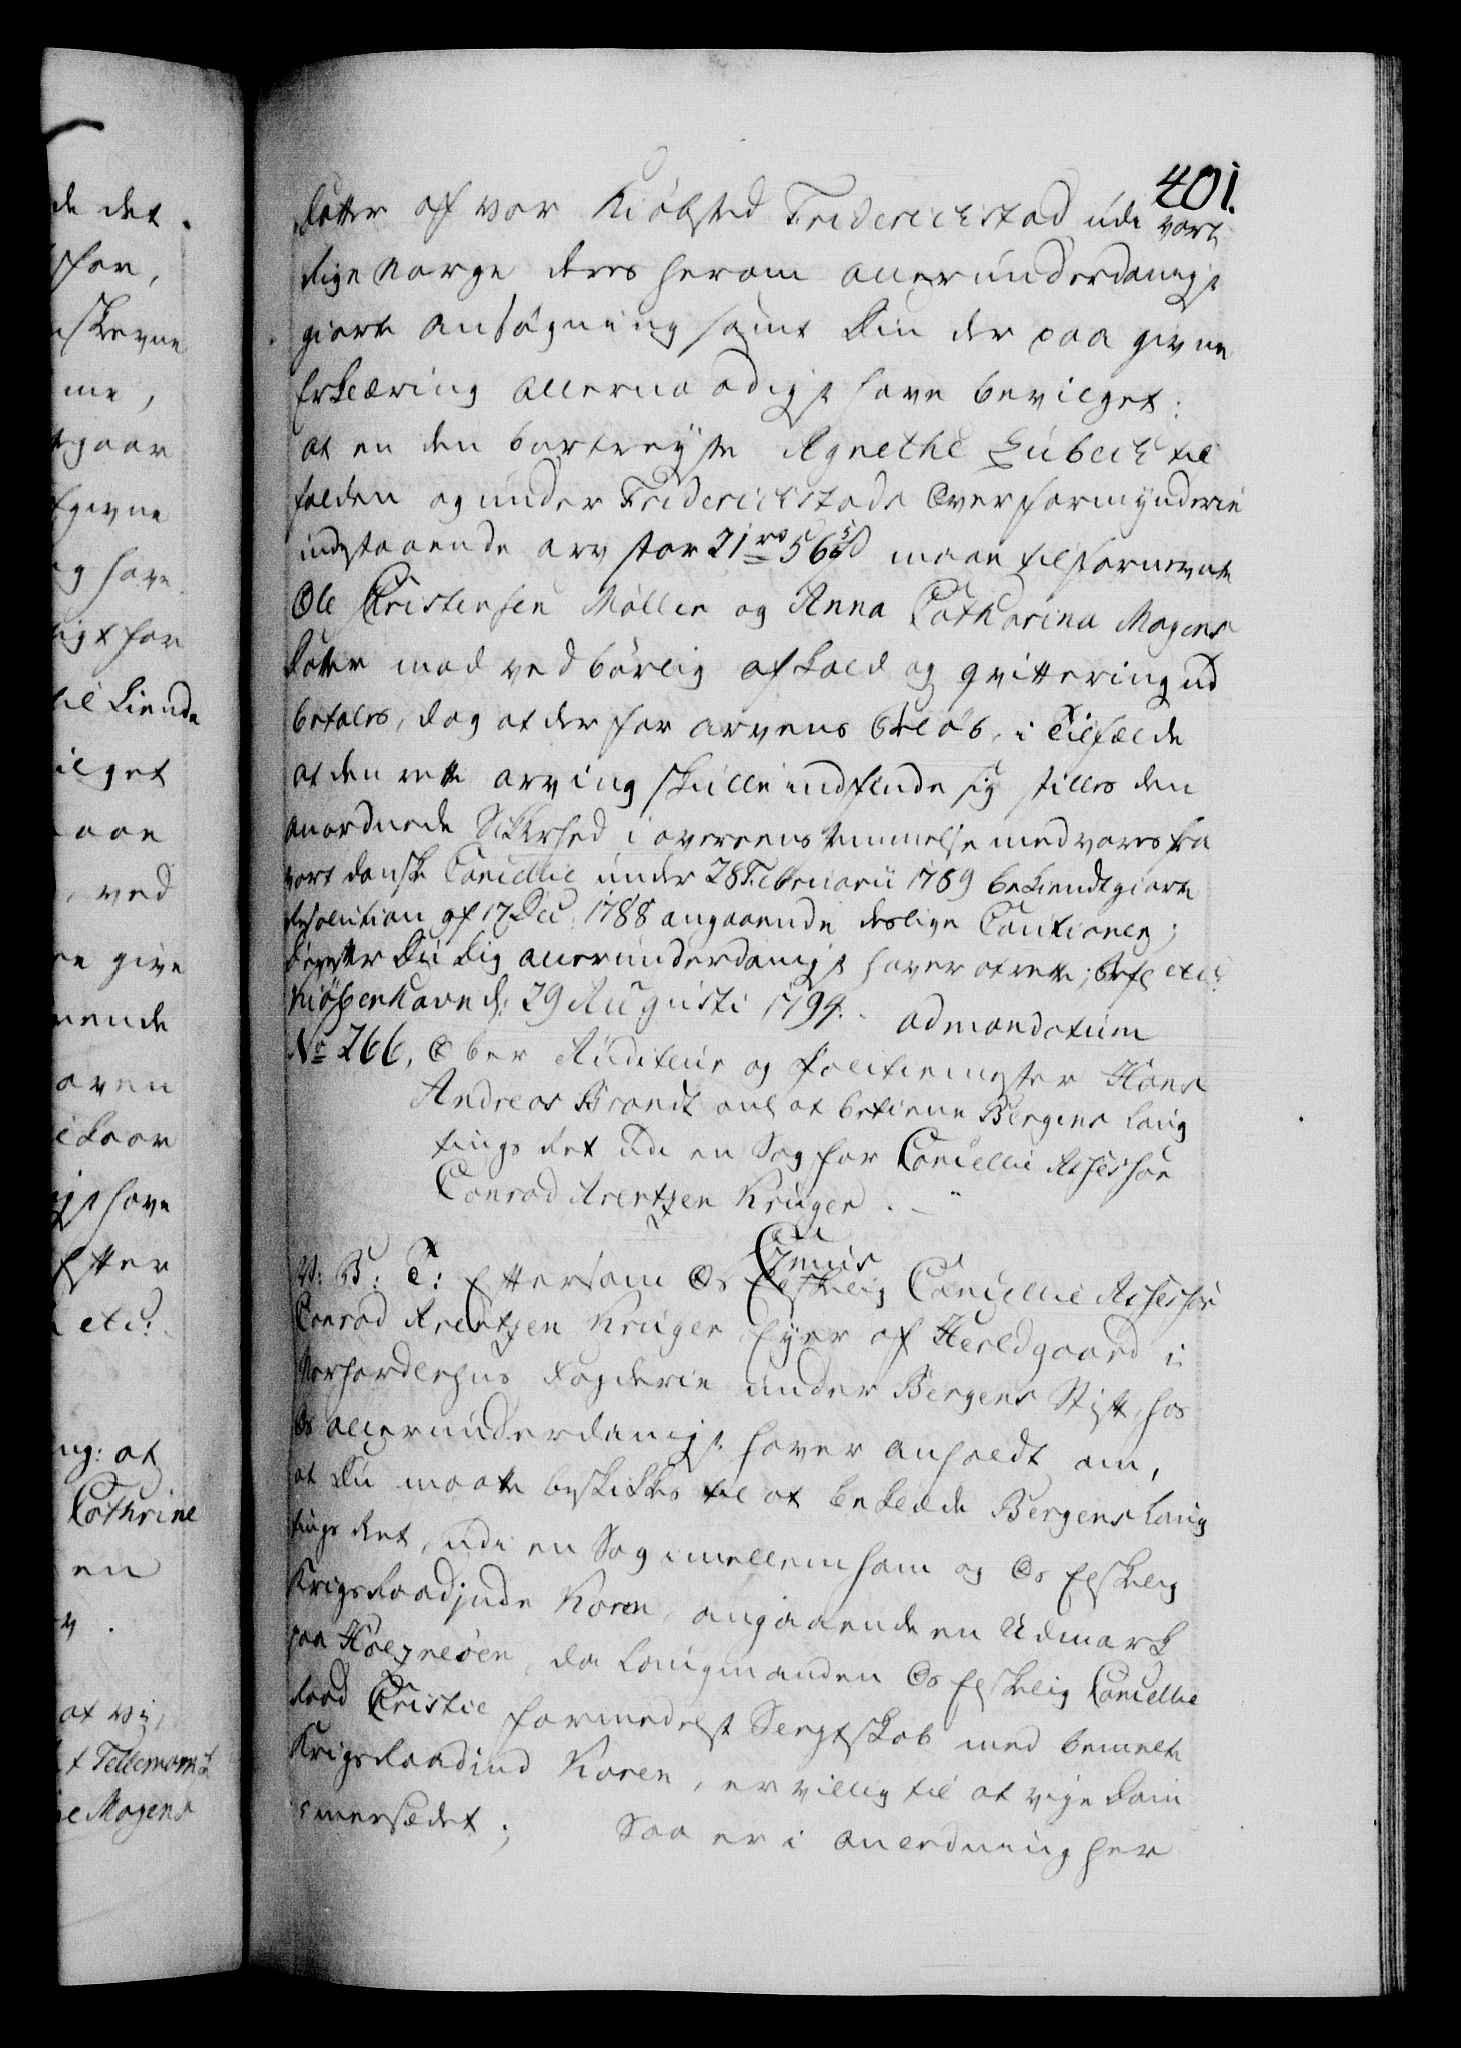 401.
datter af vor Kiöbsted Friderichstad udi vort
Rige Norge deres herom allerunderdanigst
giorte Ansøgning samt Din der paa givne
Erklæring allernaadigst have bevilget:
at en den bortreyste Agnethe Lübech til
falden og under Friderichstads Overformynderie
indestaaende arv stor 21 rd 56 5/6 s maae til fornevnte
Ole Christensen Møller og Anna Catharina Mogens
datter mod vedbörlig afkald og qvittering ud
betales, dog at der for arvens belöb, i Tilfælde
at den rette arving skulle indfinde sig stilles den
anordnede Sikkerhed i overeensstemmelse med vores fra
vort danske Cancellie under 28 Februarii 1789 bekiendtgiorte
Resolution af 17 Dec: 1788 angaaende deslige Cautioner;
Derefter Du Dig allerunderdanigst haver at rette; Befl etc:
Kiøbenhavn d: 29 Augusti 1794.
ad mandatum
No 266. Ober Auditeur og Politiemester Hans
Andreas Brandt anl at betiene Bergens Laug
tings Ret udi en Sag for Cancellie Assessor
Conrad Arentzen Krüger.
V: B: T: Eftersom Os Elskelig Cancellie Assessor
Conrad Arentzen Krüger Eyer af Herldgaard i
Norhordlehns Fogderie under Bergens Stift, hos
Os allerunderdanigst haver anholdt om,
at Du maatte beskikkes til at beklæde Bergens Laug
tings Ret, udi en Sag imellem ham og Os Elskelig
Krigsraadinde Koren, angaaende en Udmark
paa Holsnöen, da Laugmanden Os Elskelig Cancellie
Raad Christie formedelst Svogerskab med bemelte
Krigsraadinde Koren, er villig til at vige Dom
mersædet; Saa er i anledning her